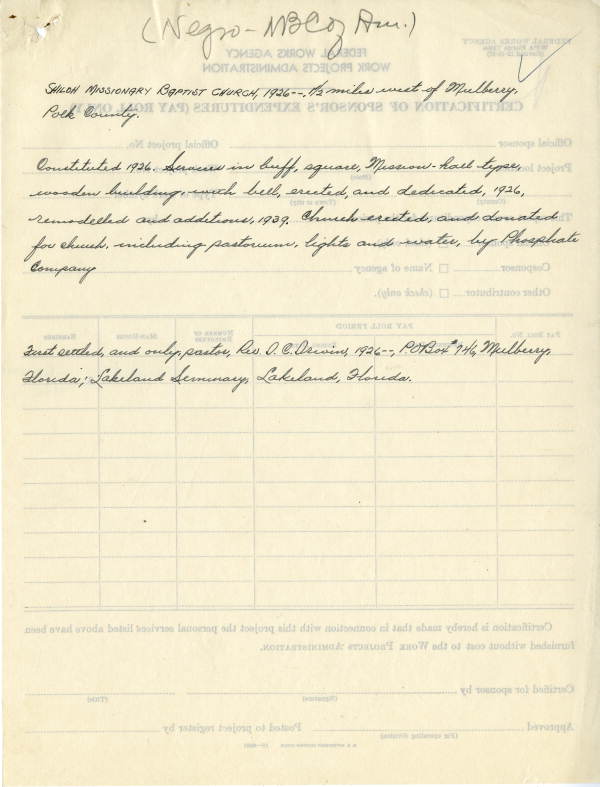 (Negro - MBC of Am.)
SHILOH MISSIONARY BAPTIST CHURCH, 1926--, 1/2 miles west of Mulberry,
Polk County.
Constituted 1926. Services in buff, square, Mission-hall type,
wooden building, with bell, erected, and dedicated, 1926,
remodelled and additions, 1939. Church erected, and donated
for church, including pastorium, lights and water, by Phosphate
Company
First settled, and only, pastor, Rev. O. C. Irwin, 1926--, P.O Box #746, Mulberry,
Florida; Lakeland Seminary, Lakeland, Florida.
FEDERAL WORKS AGENCY
WORK PROJECTS ADMINISTRATION
CERTIFICATION OF SPONSOR'S EXPENDITURES (PAY ROLL ONLY)
Official sponsor
Official project No.
Cosponsor Name of agency
Other contributor (check only).
PAY ROLL PERIOD
Certification is hereby made that in connection with this project the personal services listed above have been
furnished without cost to the WORK PROJECTS ADMINISTRATION.
Certified for sponsor by
(Signature) (Title)
Approved Posted to project register by
(For operating division)